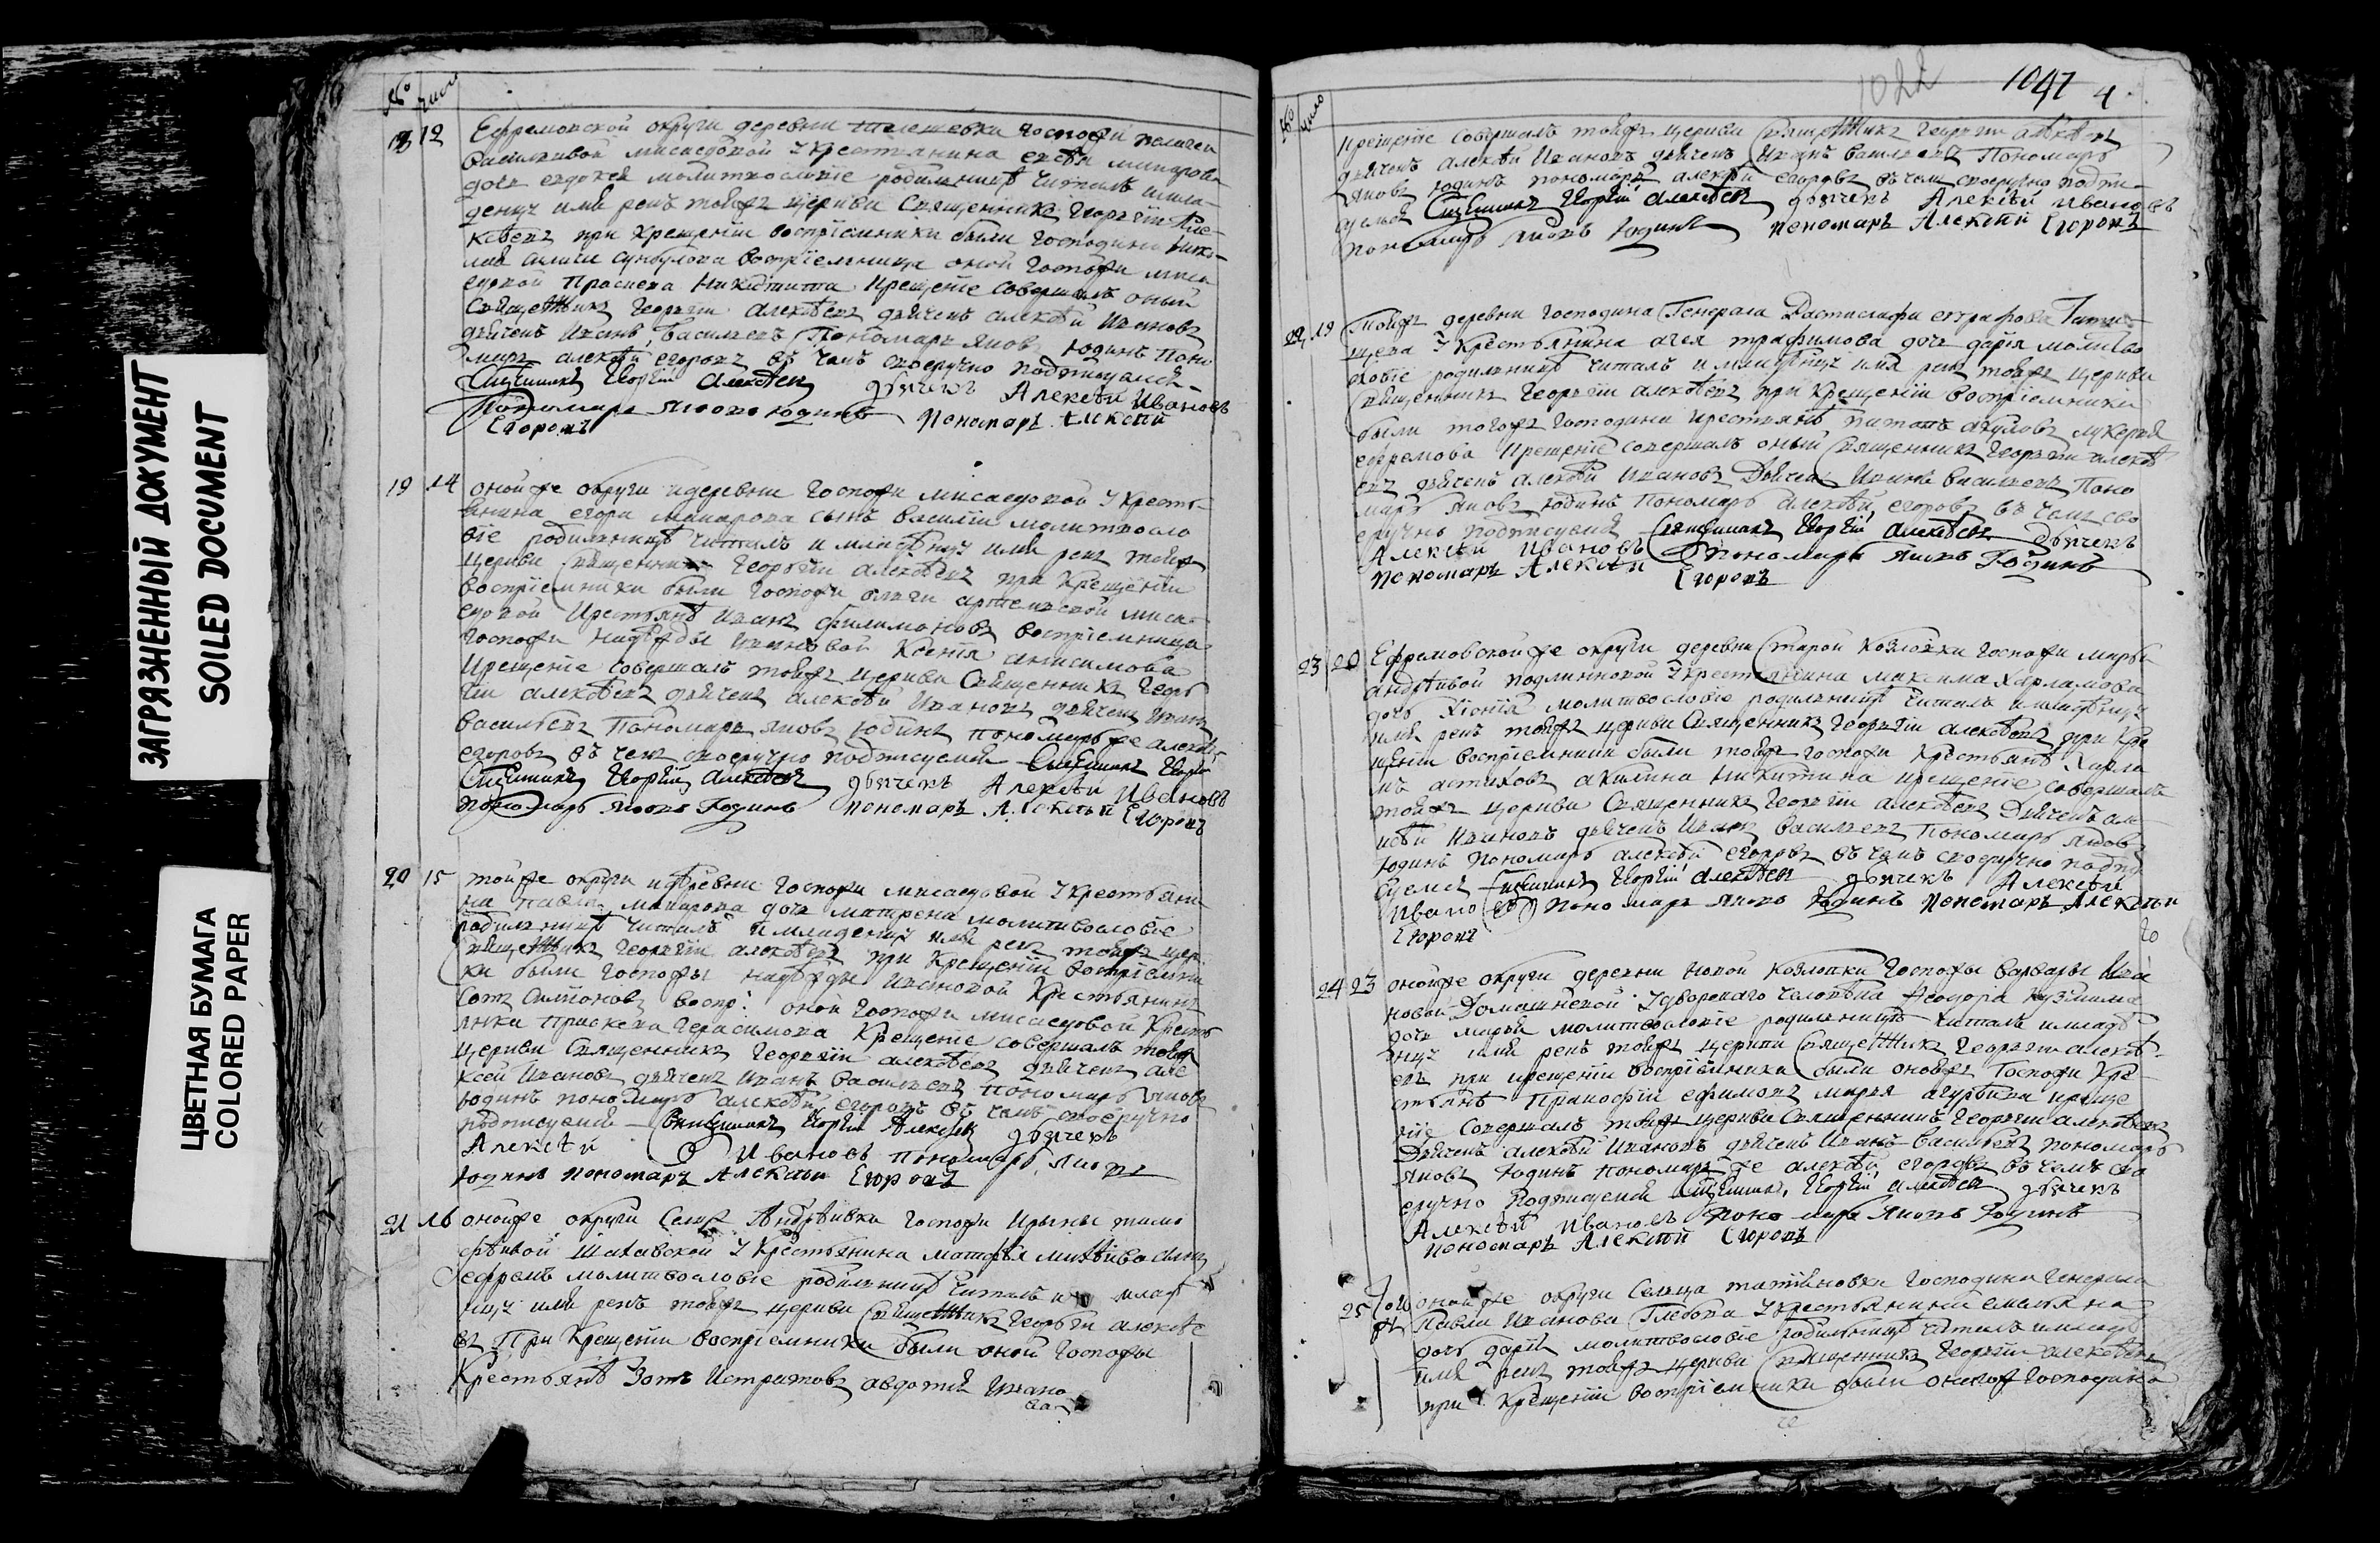 ЗАГРЯЗНЕННЫЙ ДОКУМЕНТ
SOILED DOCUMENT
ЦВЕТНАЯ БУМАГА
COLORED PAPER
№ число
18 12 Ефремовской округи деревни госпожи
Василивой мисаедовой у крестианина
дочь евдокея молитвословіе родилницѣ читалъ имла-
денцу имя рекъ тойжъ церкви Священникъ Георьгіи Але-
ксѣевъ при Крещеніи воспріемники были господина
воспріемница оной госпожи миса-
едовой Праскева Никитина Крещеніе совершалъ оный
Священникъ Георьгіи алексѣевъ дьячекъ алексѣй Ивановъ
дьячекъ Иванъ Васильевъ Пономарь яковъ Юдинъ Поно
марь алексѣй егоровъ въ чемъ своеручно подписуемся
Священникъ Георгій Алексѣевъ дьячекъ Алексѣй Ивановъ
Пономарь Яковъ Юдинъ Пономарь Алексѣй
Егоровъ
19 14 онойже округи идеревни Госпожи мисаедовой у Кресть-
янина егора макарова сынъ василіи молитвосло
віе родилницѣ читалъ и младѣнцу имя рекъ тойжъ
Церкви Священникъ Георьгіи алексѣевъ при Крещеніи
воспріемники были Госпожи миса-
едовой Крестьянѣ Иванъ филимоновъ воспріемница
госпожи надѣжды Ивановой Ксенія анисимова
Крещеніе совершалъ тойжъ церкви Священникъ Георь
гіи алексѣевъ дьячекъ алексѣй Ивановъ дьячекъ Иванъ
Васильевъ Пономарь яковъ Юдинъ пономарь же алексѣй
егоровъ въ чемъ своеручно подписуемся
Священникъ Георгій Алексѣевъ дьячекъ Алексѣй Ивановъ
пономарь Яковъ Юдинъ пономарь Алексѣй Егоровъ
20 15 тойже округи идѣревни Госпожи мисаедовой у Крестьяни
на Павла макарова дочь матрена молитвословіе
родилницѣ читалъ имладенцу имя рекъ тойжъ цер
Священникъ Георьгіи алексѣевъ при Крещеніи воспріемни
ки были Госпожы надѣжды Ивановой Крестьянинъ
воспр: оной госпожи мисаедовой Кресть
янки Праскева Герасимова Крещеніе совершалъ тойжъ
церкви Священникъ Георьгіи алексѣевъ дьячекъ але
ксей Ивановъ дьячекъ Иванъ Васильевъ Пономарь яковъ
Юдинъ пономарь алексѣй егоровъ въ чемъ своеручно
подписуемся Священникъ Георгій Алексѣевъ дьячекъ
Алексѣй Ивановъ пономарь Яковъ
Юдинъ пономарь Алексѣй Егоровъ
21 16 онойже округи Селца Андрѣивки госпожи Ирыны тимо
фѣивой Шахавской у Крестьянина матфѣя сынъ
ефремъ молитвословіе родилницѣ читалъ и млад
нцу имя рекъ тойжъ церкви Священникъ Георьгіи алексѣе
въ При Крещеніи воспріемники были оной Госпожы
Крестьянѣ Зотъ Истратовъ авдотія Ивано
ва
№ число
1022
1047 4
Крещеніе Совершалъ тойжъ церкви Священникъ Георьгіи алексѣевъ
дьячекъ алексѣй Ивановъ дьячекъ Иванъ Васильевъ Пономарь
яковъ Юдинъ пономарь алексѣй егоровъ въ чемъ своеручно подпи-
суемся Священникъ Георгій Алексѣевъ дьячекъ Алексѣй Ивановъ
пономарь Яковъ Юдинъ пономарь Алексѣй Егоровъ
22 19 Тойжъ деревни господина Генерала евграфова Тати-
щева у Крестьянина трафимова дочь дарія молитво
словіе родилницѣ читалъ и младѣнцу имя рекъ тойжъ церкви
Священникъ Георьгіи алексѣевъ при Крещеніи воспріемники
были тогожъ Господина крестьянѣ лукерія
ефремова Крещеніе совершалъ оный Священникъ Георьгіи алексѣ
евъ дьячекъ алексѣй Ивановъ Дьячекъ Иванъ Васильевъ Поно
марь яковъ Юдинъ Пономарь алексѣй егоровъ въ чемъ сво
еручно подписуемся Священникъ Георгій Алексѣевъ Дьячекъ
Алексѣй Ивановъ Пономарь Яковъ Юдинъ
пономарь Алексѣй Егоровъ
23 20 Ефремовскойже округи деревни Старой Козловки госпожи марьи
андрѣивой у крестьянина максима Харламова
дочь Хіонія молитвословіе родилницѣ читалъ имладѣнцу
имя рекъ тойжъ церкви Священникъ Георьгіи алексѣевъ при Кре
щеніи воспріемники были тойжъ госпожи Крестьянѣ Харла
мъ акилина Никитина крещеніе совершалъ
тойжъ церкви Священникъ Георьгіи алексѣевъ Дьячекъ але
ксѣй Ивановъ дьячекъ Иванъ Васильевъ пономарь яковъ
Юдинъ пономарь алексѣй егоровъ въ чемъ своеручно подпи
суемся Священникъ Георгій Алексѣевъ дьячекъ Алексѣй
Ивановъ пономарь Яковъ Юдинъ Пономарь Алексѣй
Егоровъ
24 23 онойже округи деревни новой Козловки госпожы Варвары Ива
новой Домашневой у дворскаго человѣка Ѳеодора Кузмина
дочь марья молитвословіе родилницѣ читалъ имладѣ
нцу имя рекъ тойжъ церкви Священникъ Георьгіи алексѣ-
евъ при крещеніи воспріемники были онойжъ Госпожи Кре
стьянѣ Пракофіи ефимовъ марья креще
ніе Совершалъ тойжъ церкви Священникъ Георьгіи алексѣевъ
Дьячекъ алексѣй Ивановъ дьячекъ Иванъ Васильевъ пономарь
яковъ Юдинъ пономарь же алексѣй егоровъ въ чемъ сво
еручно подписуемся Священникъ Георгій Алексѣевъ дьячекъ
Алексѣй Ивановъ пономарь Яковъ Юдинъ
пономарь Алексѣй Егоровъ
25 онойже округи Селца татьяновки Господина Генерала
Павла Иванова Глебова у крестьянина
дочь дарія молитвословіе родилницѣ читалъ имладѣ
имя рекъ тойжъ церкви Священникъ Георьгіи алексѣевъ
при Крещеніи воспріемники были оногож Господина